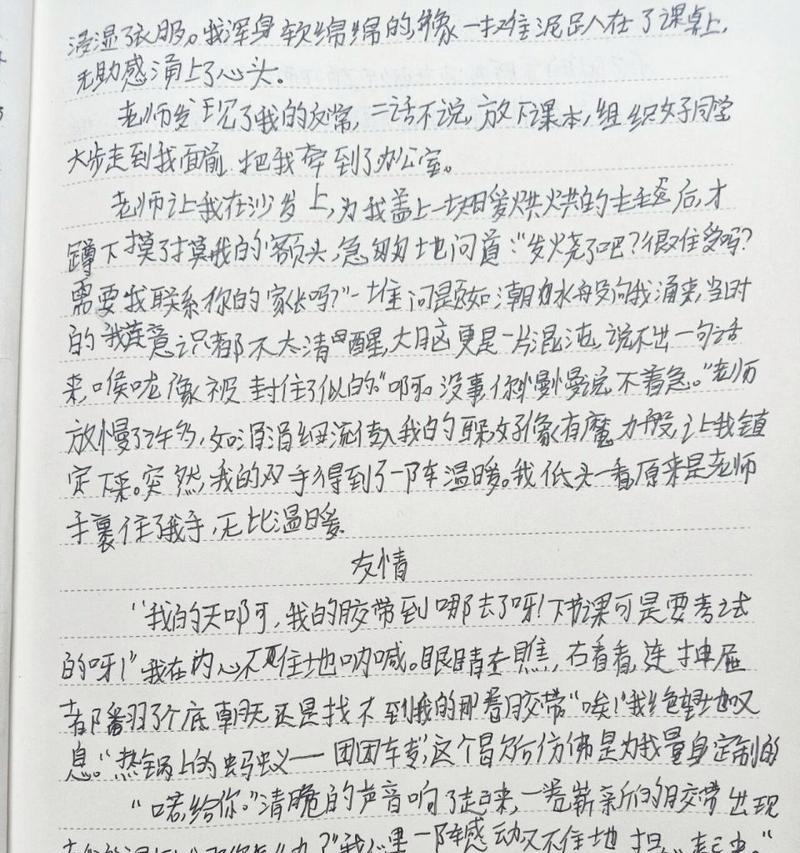 浸湿了衣服。我浑身软绵绵的,像一坨泥趴在了课桌上,
无助感涌上了心头。
老师发现了我的异常,二话不说,放下课本,组织好同学
大步走到我面前,把我牵到了办公室。
老师让我在沙发上,为我盖上一块暖烘烘的毛毯后,才
蹲下摸了摸我的额头,急匆匆地问道:“发烧了吧?很难受吗?
需要我联系你的家长吗?”一堆问题如潮水般向我涌来,当时
的我意识都不太清醒,大脑更是一片混沌,说不出一句话
来,喉咙像被封住了似的。“啊,没事你慢慢说,不着急。”老师
放慢了许多,如涓涓细流入我的耳朵,好像有魔力般,让我镇
定下来。突然,我的双手得到了一阵温暖。我低头一看原来是老师
手裹住了我手,无比温暖。
友情
“我的天啊,我的胶带到哪去了呀!下节课可是要考试
的呀!”我在内心不住地呐喊。眼睛左瞧,右看看,连抽屉
都翻了个底朝天还是找不到我的那卷胶带“唉!”我绝望地叹
息。“热锅上的蚂蚁——团团转”,这个冒险仿佛是为我量身定制的
“喏,给你。”清脆的声音响了起来,一卷崭新的胶带出现
我心里一阵感动又不住地担心起来。“